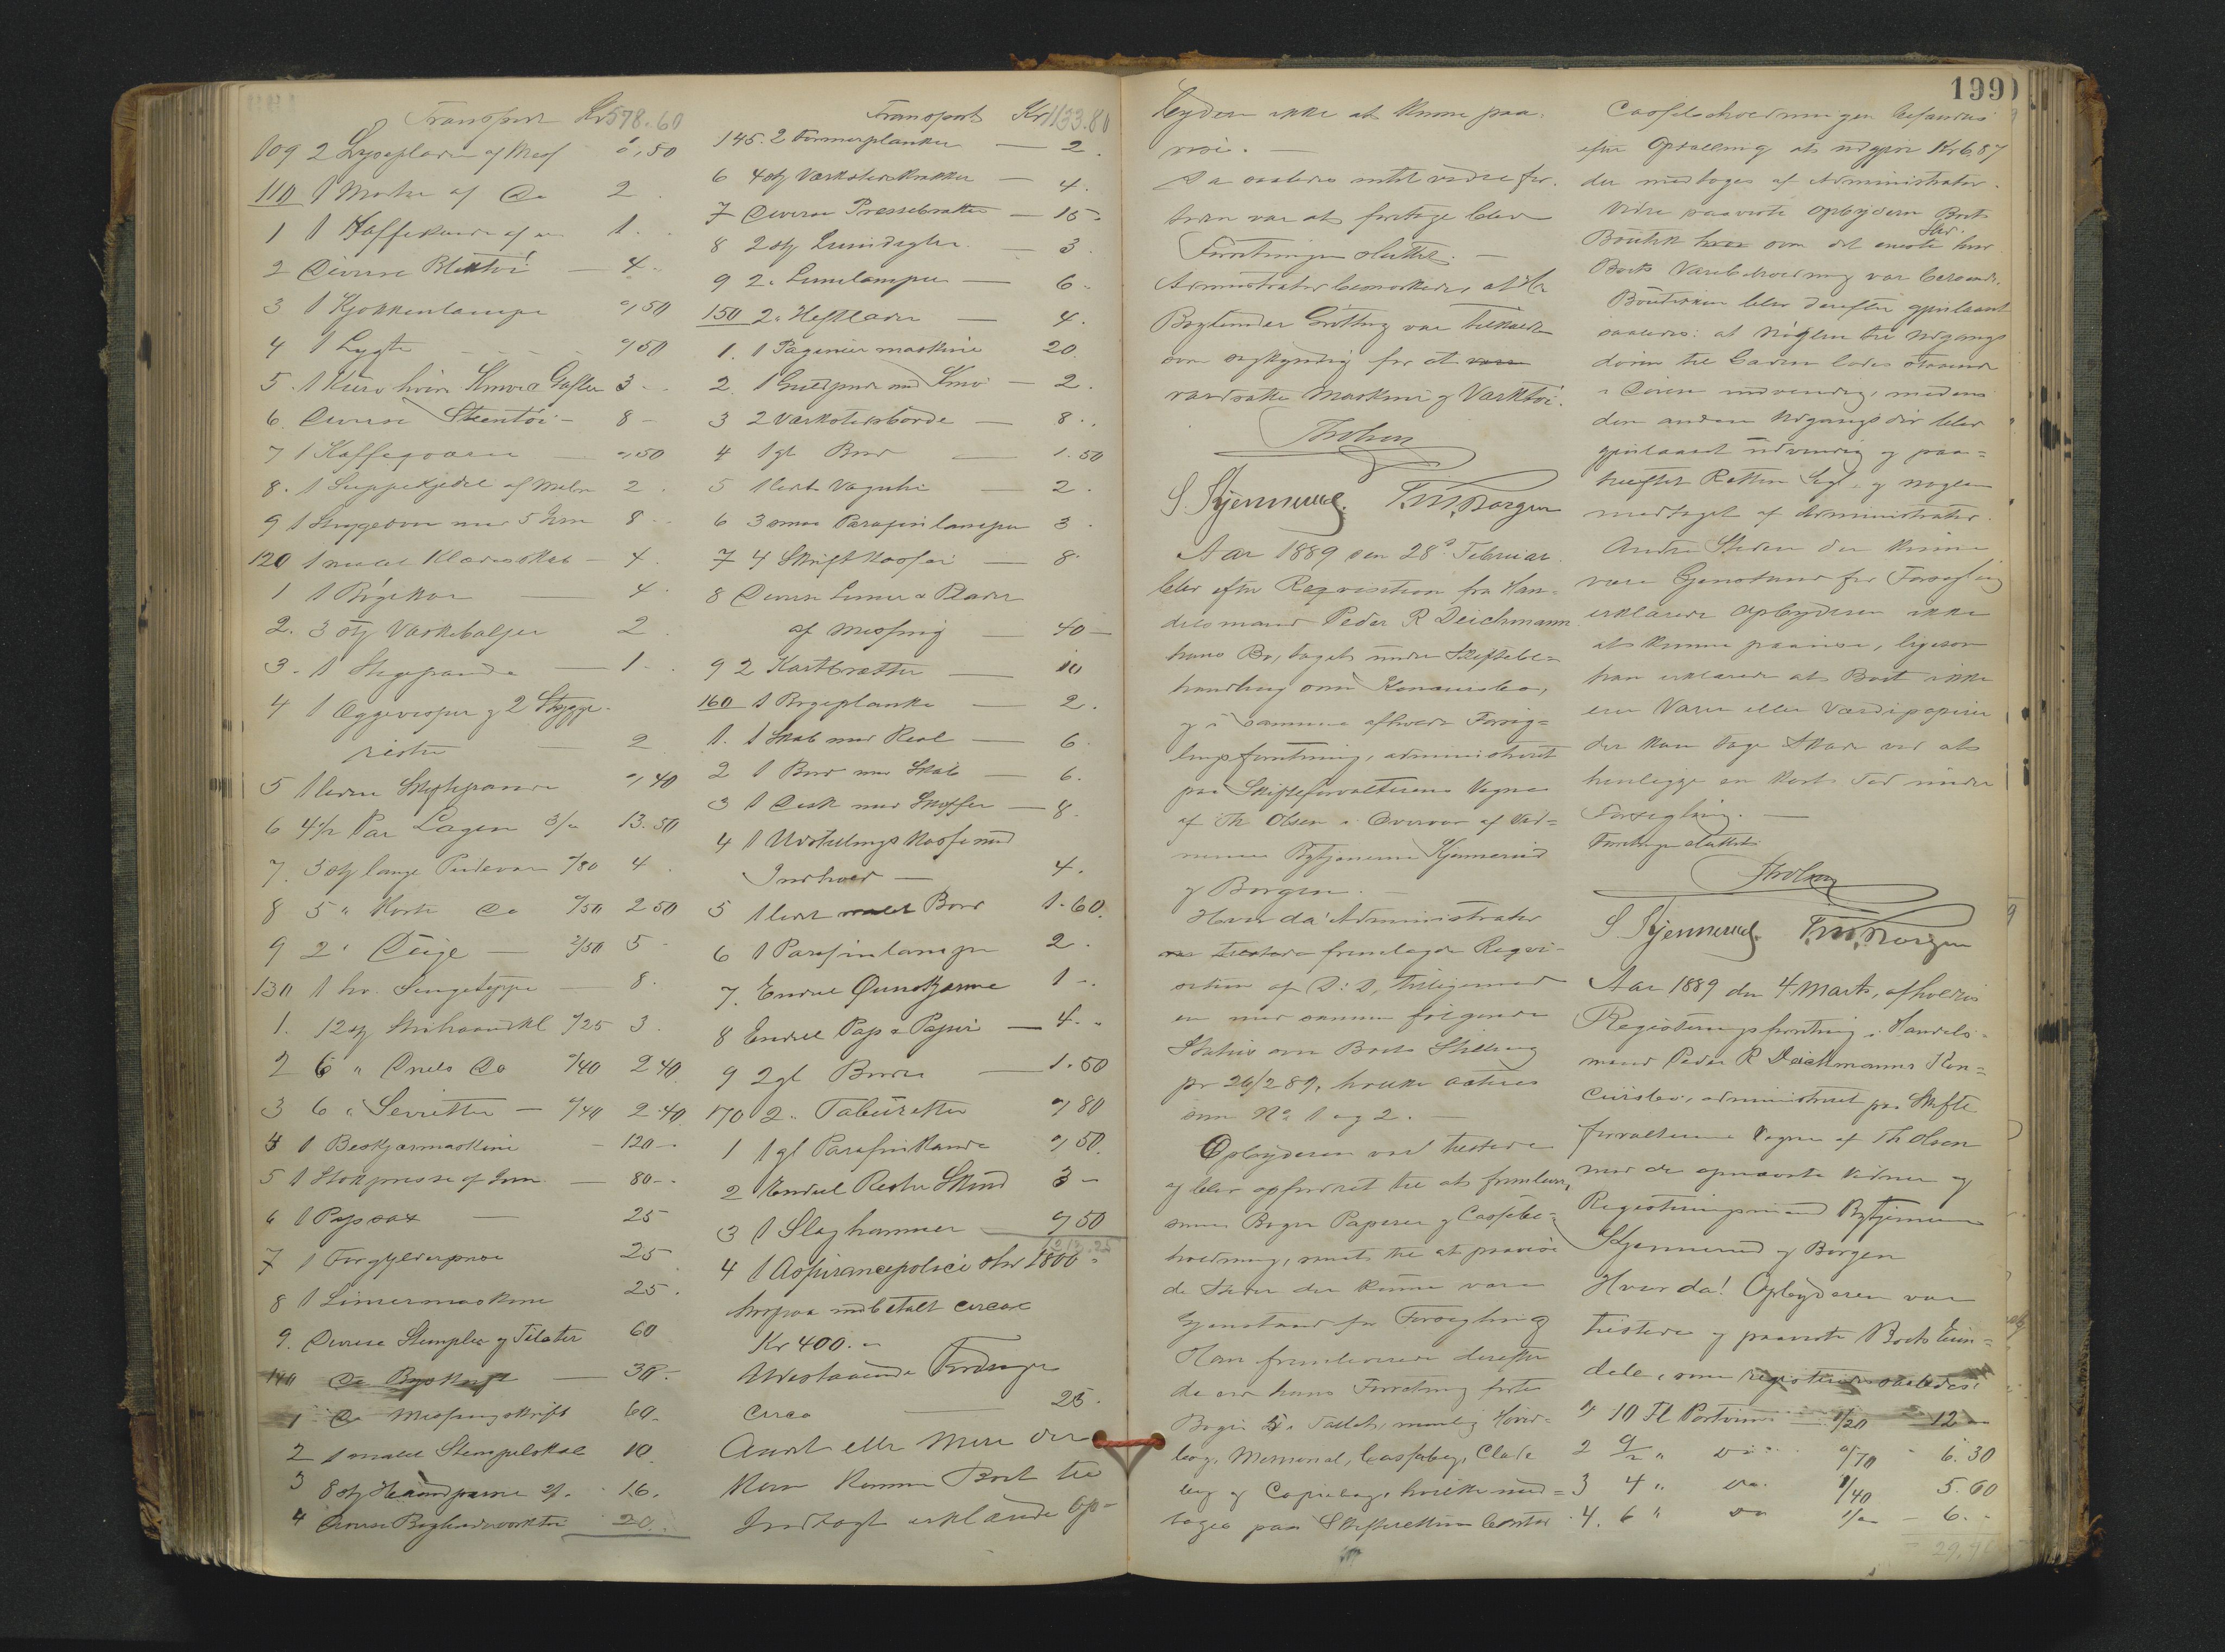 Transport Kr 578.60
109 2 Lyseplader af Mes " ,50
110 1 Morter af Do 2.
1 1 Kaffekande af 1.
2 Diverse Bliktöi — 4 -
3 1 Kjøkkenlampe "/50
4 1 Lygte "/50
5 1 Kurv hvori Knive & Gafler 3 -
6. Diverse Steentöi - 8 -
7 1 Kaffeqværn — "/50
8. 1 Suppekjedel af Malm 2.
9 1 Strygeovn med 5 Jern 8 -
120 1 malet Klædesskab — 4.
1 1 Bögekar — 4.
2. 3 stk Vaskebaljer 2
3. 1 Stegepande — 1.
4 1 Æggevisper og 2 Strygge-
rister — 2
5 1 liden Stegepande "/40
6 4 1/2 Par Lagen 3/" 13.50
7. 5 stk lange Pudevar "/80 4.
8 5 " Korte Do "/50 2 50
9 2 " Duge — 2/50 5 -
130 1 hv. Sengeteppe — 8.
1. 12 stk "/25 3.
2 6 " Drels Do "/40 2 40
3 6 " Servietter — "/40 2.40
4 1 Beskjærmaskine — 120 -
5 1 Stokpresse af Jern — 80 -
6 1 Papsax — 25
7 1 Forgylderpresse 25
8 1 Liniermaskine 25.
9. Diverse Stempler og Fileter 60
140 Do Bogskrift — 30 -
1 Do Messingskrift 60.
2 1 malet Stempelskab 10.
3 8 stk Haandpresser 2/" 16.
4 Diverse Bogbinderværktöi 20.
Transport Kr 1133.80
145. 2 Formerplanker — 2.
6 4 stk Værkstedskrakker — 4.
7 Diverse Pressebrætter — 15 -
8 2 stk — 3.
9 2 " Limlamper — 6 -
150 2 " Heftlader — 4.
1. 1 Paginermaskine 20.
2. 1 med Kniv — 2.
3 2 Værkstedsborde — 8.
4 1 gl Bord — 1.50
5 1 liden Vaguhr — 2.
6 3 smaa Parafinlamper 3.
7 4 Skriftkasser — 8
8 Diverse Linier & Plader
af Messing — 40 —
9 2 Kartbrætter — 10
160 1 Bogeplanke — 2.
1. 1 Skab med Reol — 6.
2 1 Bord med Skab — 6.
3 1 Disk med Skuffer — 8.
4 1 Udstillingskasse med
Indhold — 4.
5 1 lidet malet Bord 1.60.
6 1 Parafinlampe 2.
7. Endeel 1 -.
8 Endeel Pap & Papir — 4.
9 2 gl Borde — 1.50
170 2 " Tabüretter "/80
1 1 gl Parafinkande "/50
2 Endeel Rester Skind 3 -
3 1 Slaghammer "/50
213.25
4 1 Assurancepolice stor 1800 -
hvorpaa indbetalt circa
Kr 400. -
Udestaaende Fordringer
circa — 25.
Andet eller mere der
kan komme Boet til
Indtægt erklærede Op-
199
byderen ikke at kunne paa-
vise. —
Da saaledes intet videre for-
tiden var at foretage blev
Forretningen sluttet. —
Administrator bemærkede, at Hr
Bogbinder Grötting var tilkaldt
som sagkyndig for at
værdsætte Maskiner og Værktöi.
Th Olsen
S. Kjennerud. T. M. Borgen
Aar 1889 den 28de Februar
blev efter Reqvisition fra Han-
delsmand Peder R Deichmann
hans Bo, taget under Skiftebe-
handling som Konkursbo,
og i samme afholdt Forseg-
lingsforretning, administreret
paa Skifteforvalterens Vegne
af Th Olsen i Overvær af Vid-
nerne Bytjenerne Kjennerud
og Borgen. —
Hvor da! Administrator
fremlagde Reqvi-
sition af D: D, tilligemed
en med samme følgende
Status over Boets Stilling
pr 26/2 89, hvilke acteres
som No 1 og 2. —
Opbyderen var tilstede
og blev opfordret til at fremlevere
sine Bøger Papirer og Cassebe-
holdning, samt til at paavise
de Steder der kunne være
Gjenstand for Forsegling
Han fremleverede derefter
de ved hans Forretning førte
Bøger 5 i Tallet, nemlig Hoved-
bog, Memorial, Cassabog, Clade-
bog og Copiebog, hvilke med-
toges paa Skifterettens Contor
Cassebeholdningen befandtes
efter Optælling at udgjøre Kr 6,87
der medtoges af Administrator.
Videre paaviste Opbyderen Boets
Boutik som det eneste Sted hvor
Boets Varebeholdning var beroende.
Boutikken blev derefter gjenlaaset
saaledes: at Nøglen til Udgangs
døren til Gaden lodes staaende
i Døren indvendig, medens
den anden Udgangsdør blev
gjenlaaset udvendig og paa-
hæftet Rettens Segl - og nøglen
medtaget af Administrator.
Andre Steder der kunne
være Gjenstand for Forsegling
erklærede Opbyderen ikke
at kunne paavise, ligesom
han erklærede at Boet ikke
eier Varer eller Værdipapirer
der kan tage Skade ved at
henligge en kort Tid under
Forsegling. —
Forretningen sluttet
Th Olsen
S. Kjennerud. T. M. Borgen
Aar 1889 den 4 Marts, afholdtes
Registreringsforretning i Handels-
mand Peder R Deichmanns Kon-
cürsbo, administreret paa Skifte
forvalterens Vegne af Th Olsen
med de opnævnte Vidner og
Registreringsmænd Bytjenerne
Kjennerud og Borgen
Hvor da! Opbyderen var
tilstede og paaviste Boets Eien-
dele, som registreredes saaledes:
1 10 Fl Portvin 1/20 12 -
2 9/2 " Do "/70 - 6.30
3 4 " Do. 1/40 5.60
4. 6 " Do 1/" - 6. -
29,90